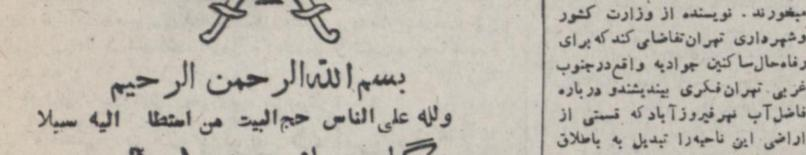 میخورند . نویسنده از وزارت کشور
وشهرداری تهران تقاضا می کند که برای
رفاه حال ساکنین جوادیه واقع در جنوب
غربی تهران فکری بیندیشند و درباره
فاضل آب نهر فیروز آباد که قسمتی از
اراضی این ناحیه را تبدیل به باطلاق
بسم الله الرحمن الرحیم
ولله علی الناس حج البیت من استطا الیه سبلا